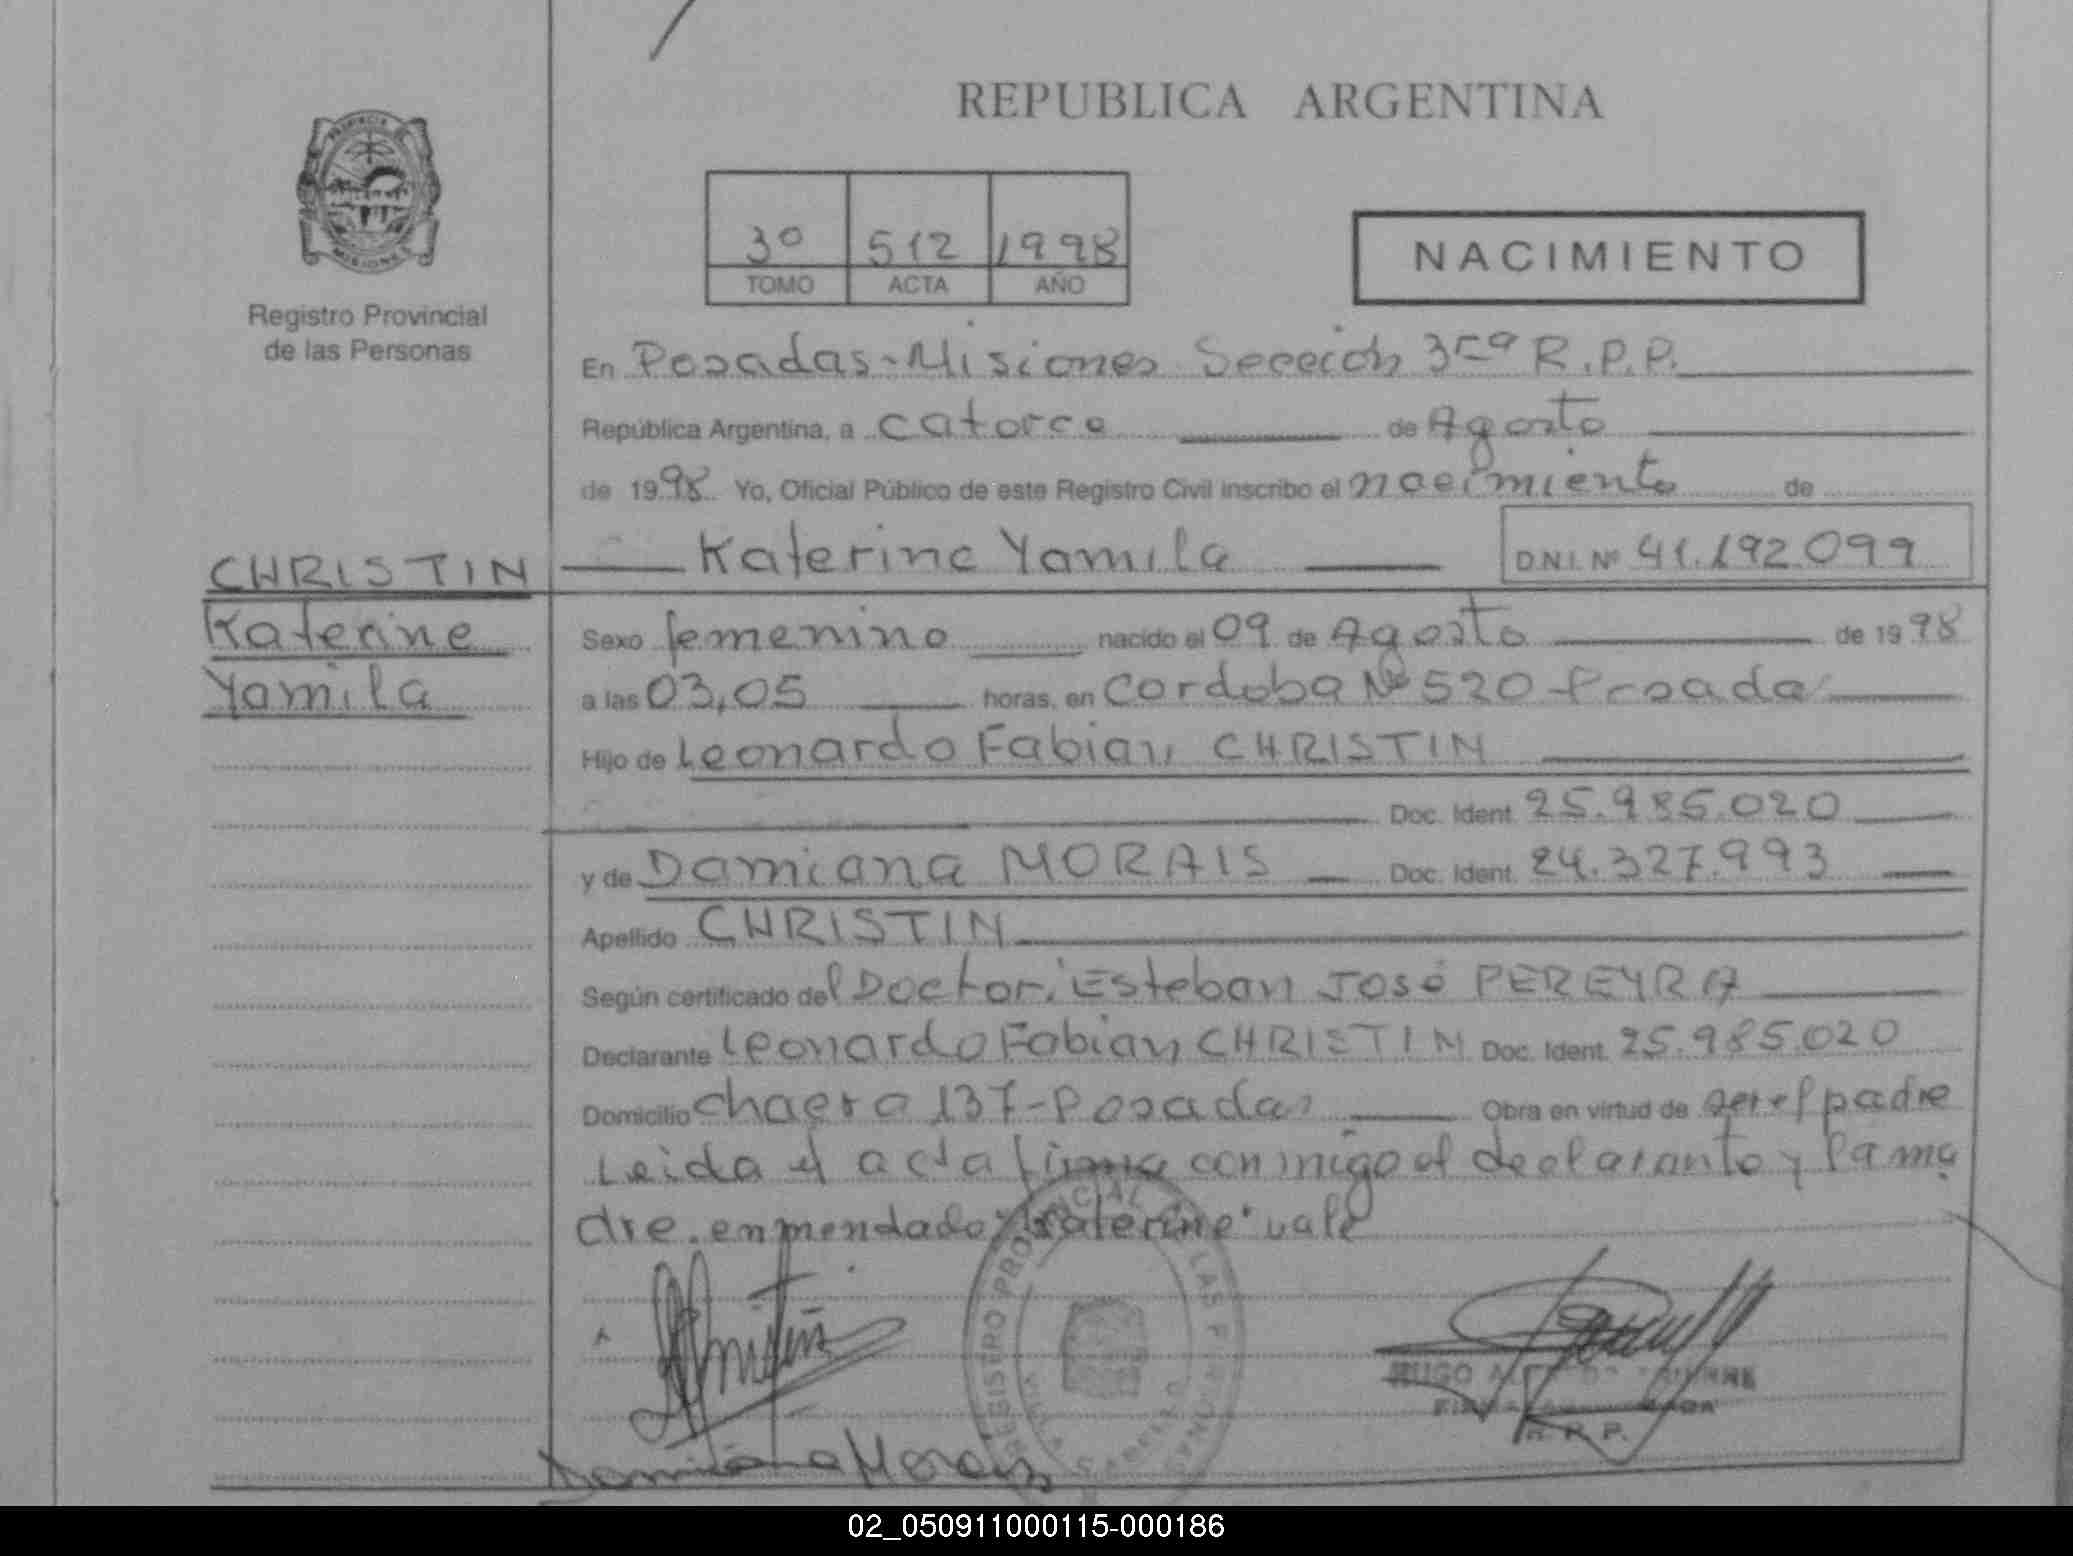 REPUBLICA ARGENTINA
PROVINCIA DE
MISIONES
Registro Provincial
de las Personas
3º 512 1998
TOMO ACTA AÑO
NACIMIENTO
En Posadas-Misiones Sección 3ra R.P.P.
República Argentina, a catorce de Agosto
de 1998 Yo, Oficial Público de este Registro Civil inscribo el nacimiento de
Katerine Yamila D.N.I. Nº 41.192.099
CHRISTIN
Katerine
Yamila
Sexo femenino nacido el 09 de Agosto de 1998
a las 03,05 horas, en Cordoba Nº 520 - Posadas
Hijo de Leonardo Fabian CHRISTIN
Doc. Ident. 25.985.020
y de Damiana MORAIS Doc. Ident. 24.327.993
Apellido CHRISTIN
Según certificado del Doctor: Esteban José PEREYRA
Declarante Leonardo Fabian CHRISTIN Doc. Ident. 25.985.020
Domicilio chacra 137-Posadas Obra en virtud de ser el padre
Leida el acta firma conmigo el declarante y la ma
dre. enmendado: "Katerine" vale
REGISTRO PROVINCIAL LAS PERSONAS
VILLA CABELLO
HUGO
R.P.P.
Damiana Morais
02_050911000115-000186